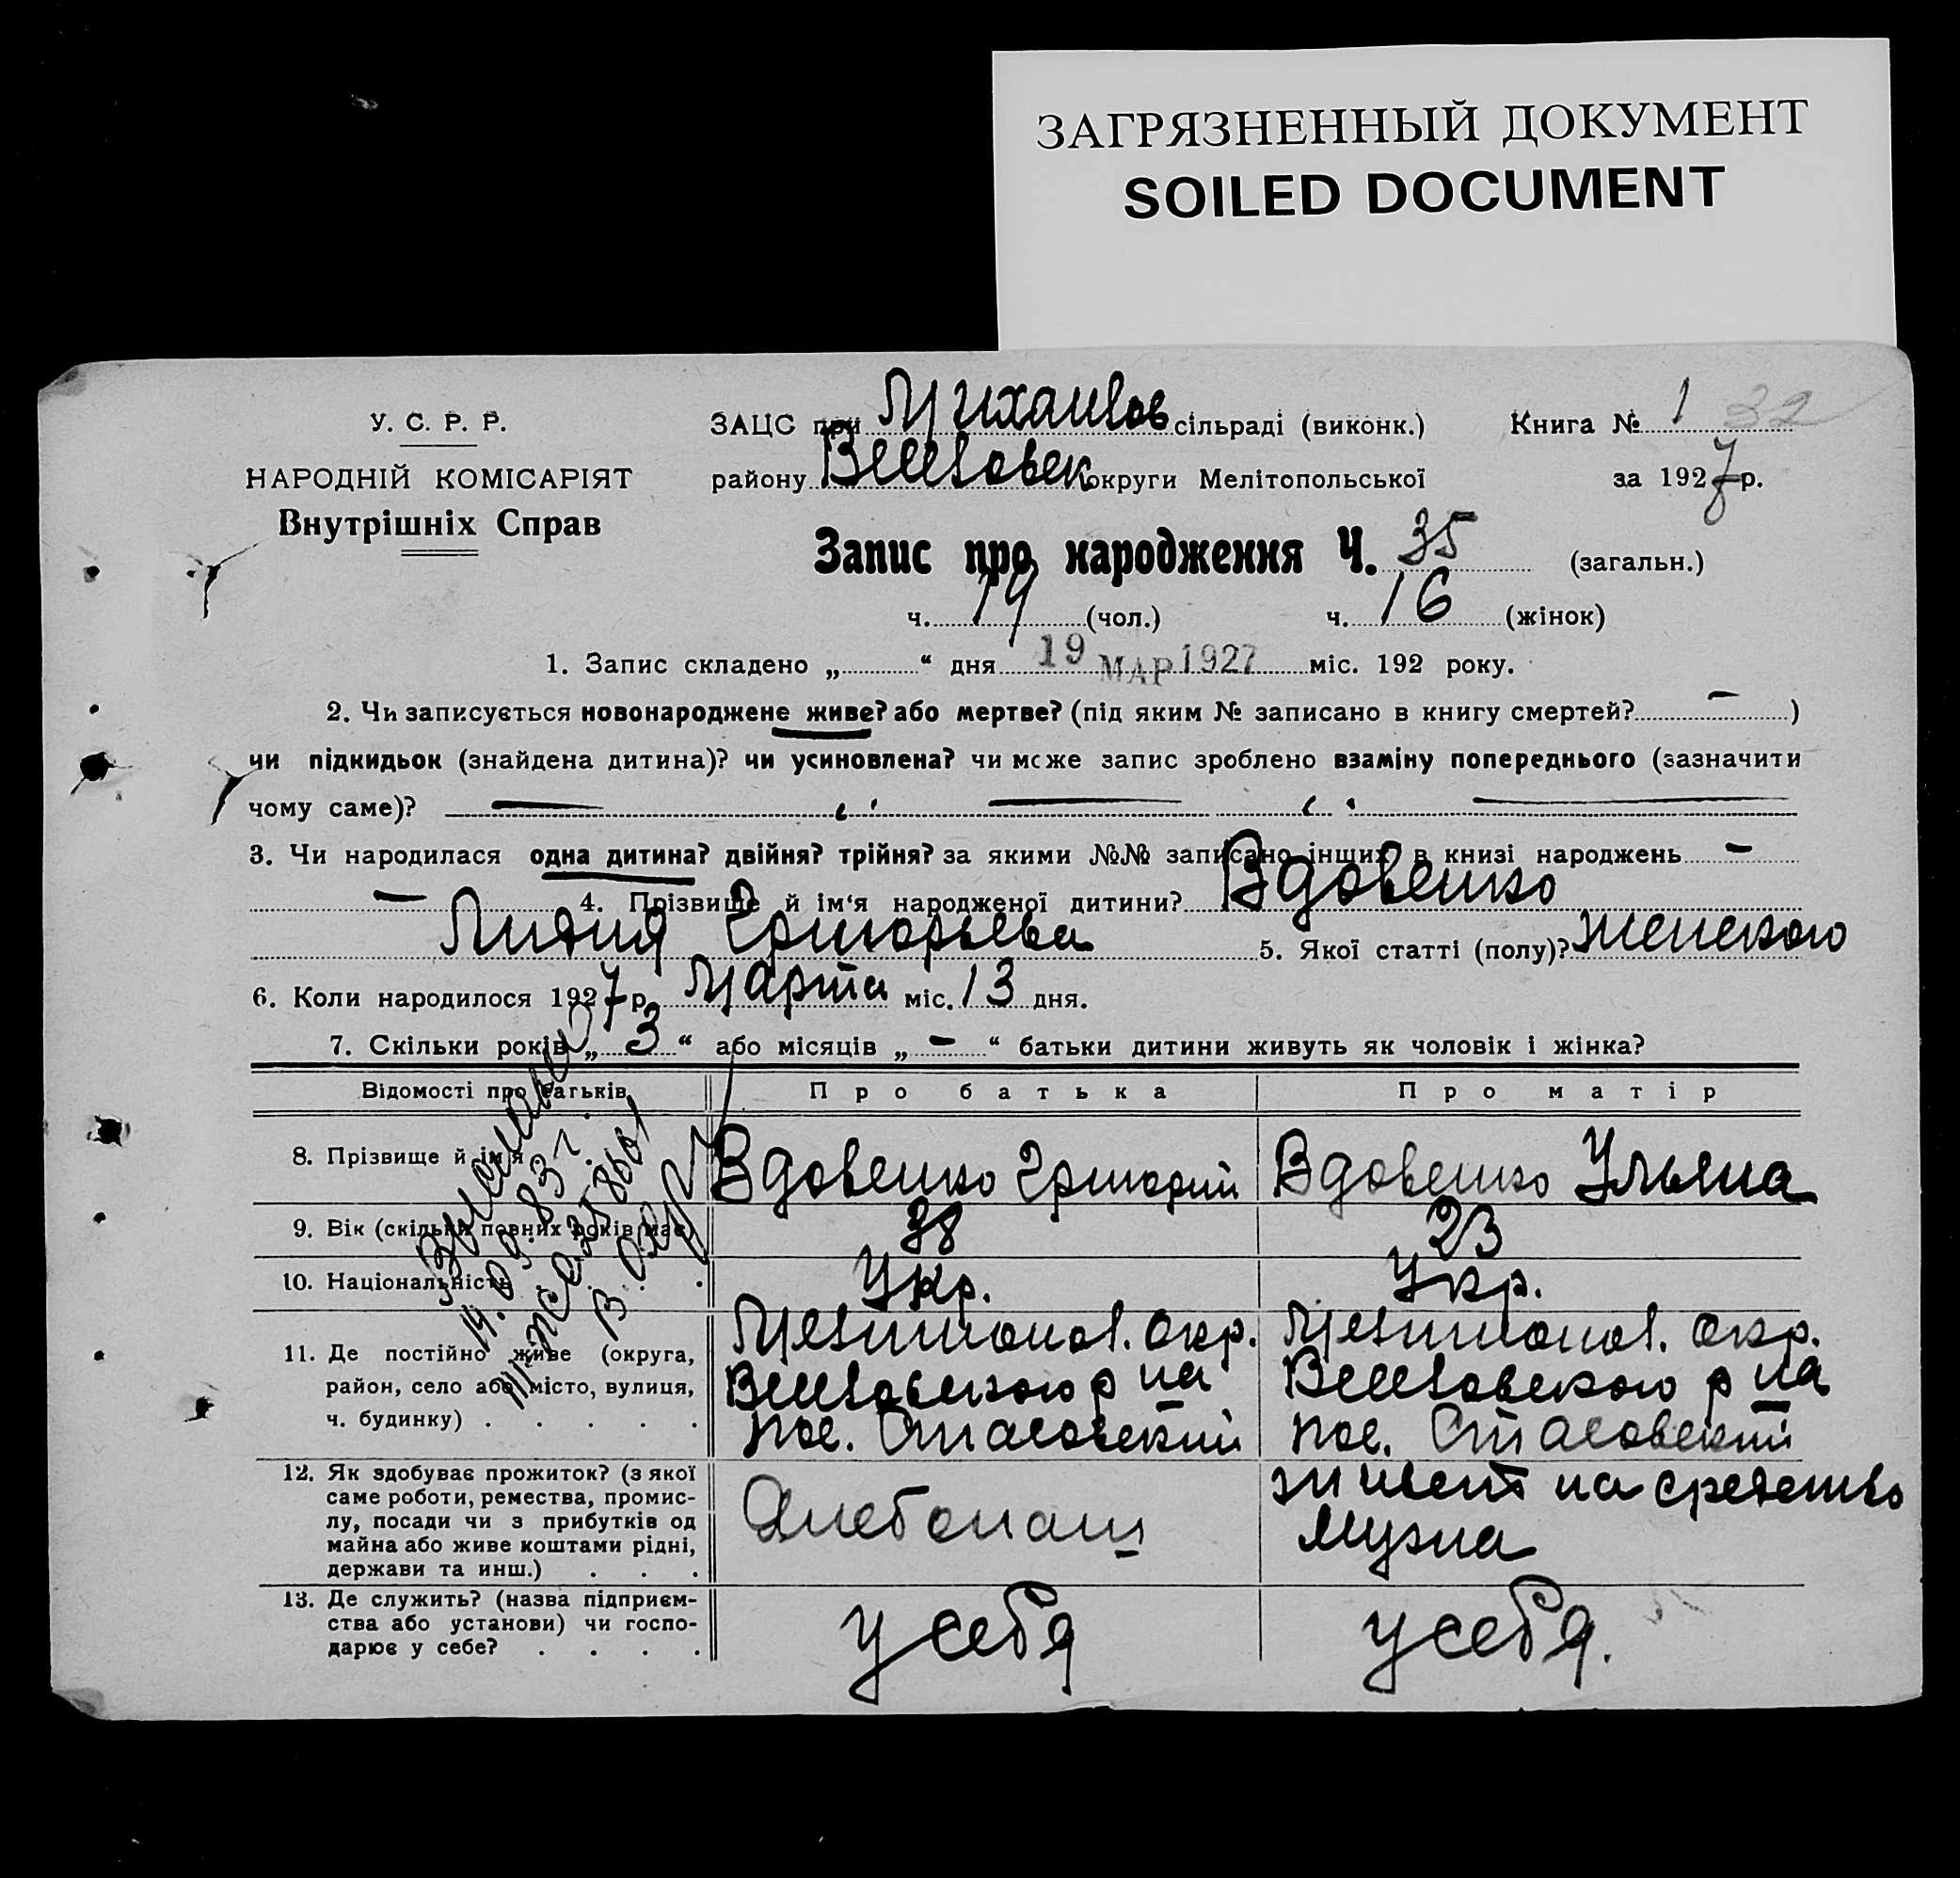 ЗАГРЯЗНЕННЫЙ ДОКУМЕНТ
SOILED DOCUMENT
У. С. Р. Р.
НАРОДНІЙ КОМІСАРІЯТ
Внутрішніх Справ
ЗАЦС при Михайлов сільраді (виконк.)
району Веселовск округи Мелітопольської
Книга № 1 32
за 1927 р.
Запис про народження Ч. 35 (загальн.)
ч. 19 (чол.) ч. 16 (жінок)
1. Запис складено „ “ дня 19 МАР 1927 міс. 192 року.
2. Чи записується новонароджене живе? або мертве? (під яким № записано в книгу смертей? — )
чи підкидьок (знайдена дитина)? чи усиновлена? чи може запис зроблено взаміну попереднього (зазначити
чому саме)?
3. Чи народилася одна дитина? двійня? трійня? за якими №№ записано інших в книзі народжень —
— 4. Прізвище й ім‘я народженої дитини? Вдовенко
Лидия Григорьева 5. Якої статті (полу)? женского
6. Коли народилося 1927 р. Марта міс. 13 дня.
7. Скільки років „ 3 “ або місяців „ — “ батьки дитини живуть як чоловік і жінка?
Відомості про батьків Про батька Про матір
8. Прізвище й ім‘я Вдовенко Григорий Вдовенко Ульяна
9. Вік (скільки повних років має) 38 23
10. Національність Укр. Укр.
11. Де постійно живе (округа,
район, село або місто, вулиця,
ч. будинку) . . . . .
Мелитопол. окр.
Веселовского р на
пос. Стасовский
Мелитопол. окр.
Веселовского р на
пос. Стасовский
12. Як здобуває прожиток? (з якої
саме роботи, ремества, промис-
лу, посади чи з прибутків од
майна або живе коштами рідні,
держави та инш.) . . .
Хлебопаш
живет на средство
мужа
13. Де служить? (назва підприєм-
ства або установи) чи госпо-
дарює у себе? . . . .
у себя
у себя.
14.09.83 г.